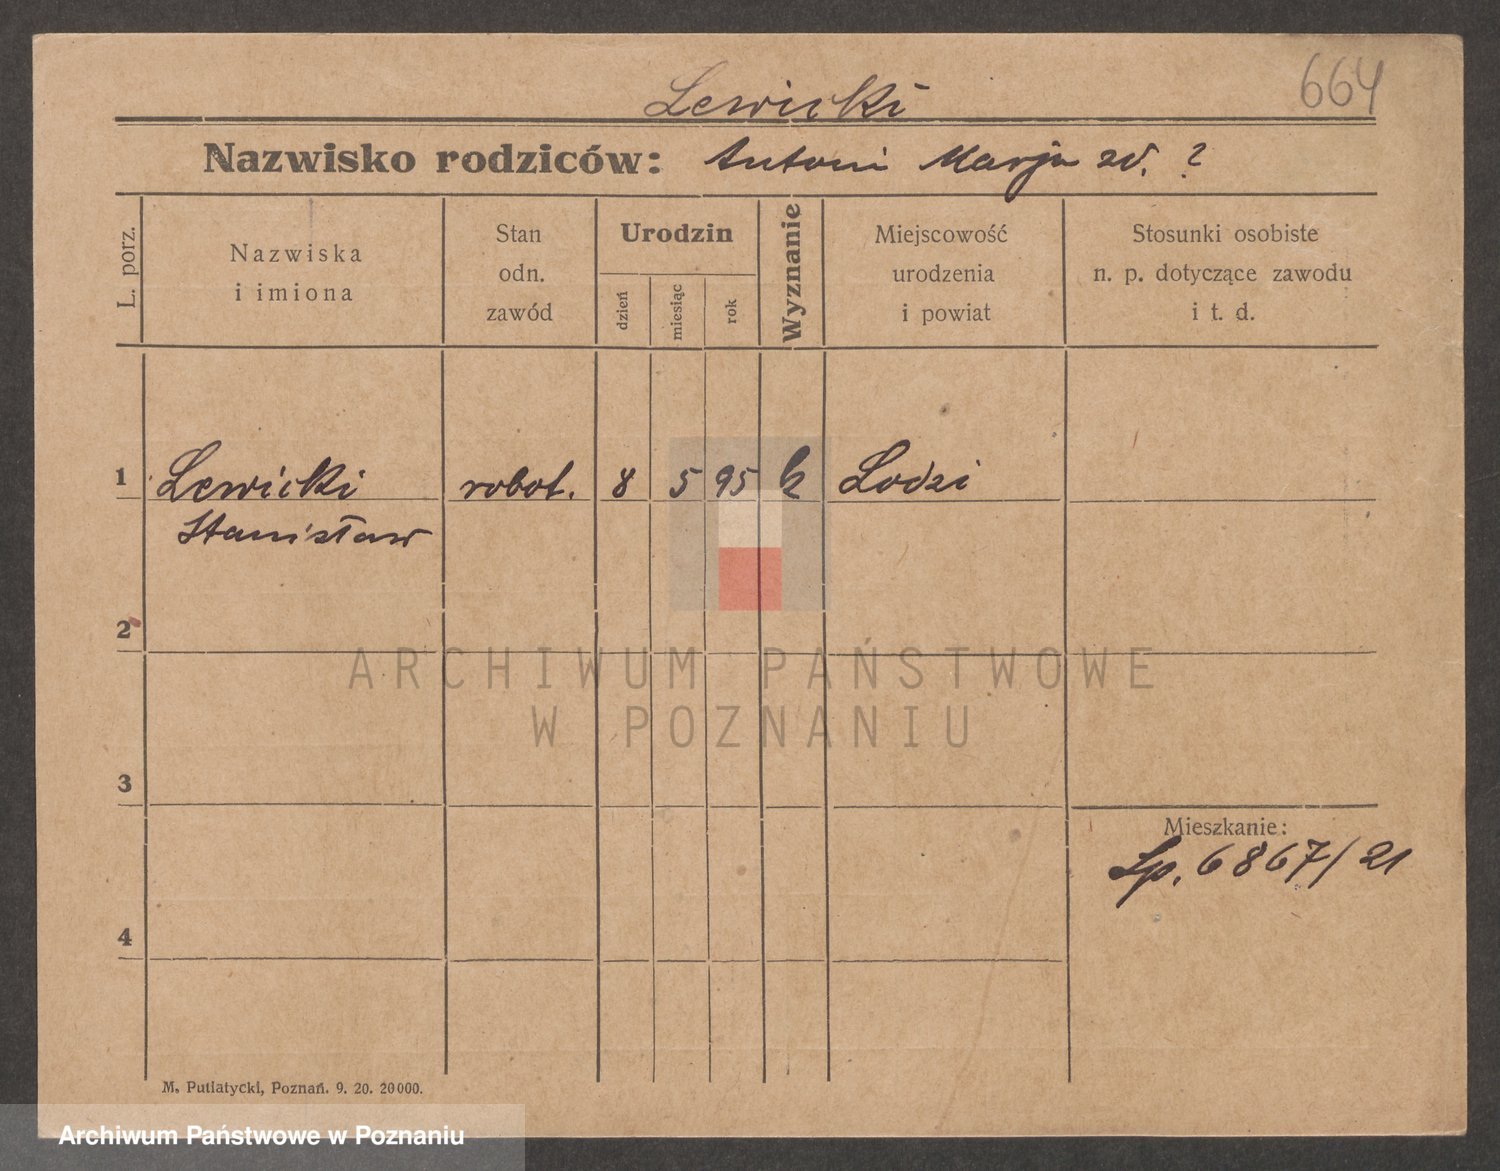 664
Lewicki
Nazwisko rodziców: Antoni Marja zd. ?
L. porz.
Nazwiska
i imiona
Stan
odn.
zawód
Urodzin
dzień
miesiąc
rok
Wyznanie
Miejscowość
urodzenia
i powiat
Stosunki osobiste
n. p. dotyczące zawodu
i t. d.
1 Lewicki robot. 8 5 95 k Lodzi
Stanisław
2
ARCHIWUM PAŃSTWOWE
W POZNANIU
3
Mieszkanie:
Lp. 6867/21
4
M. Putiatycki, Poznań. 9. 20. 20000.
Archiwum Państwowe w Poznaniu